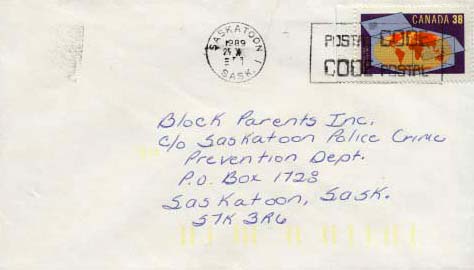 SASKATOON 1
1989
SASK.
POSTAL CODE
CODE POSTAL
CANADA 38
Block Parents Inc.
c/o Saskatoon Police Crime
Prevention Dept.
P.O. Box 1728
Saskatoon, Sask.
S7K 3R6